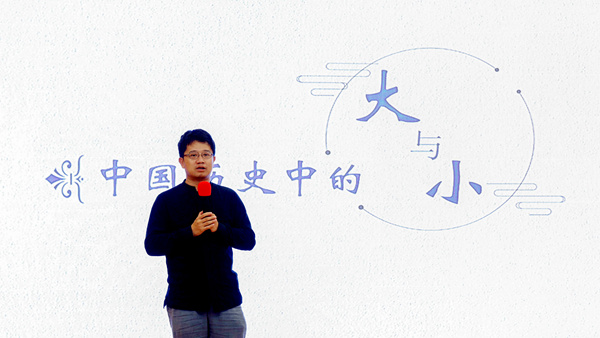 中国历史中的
大
与
小